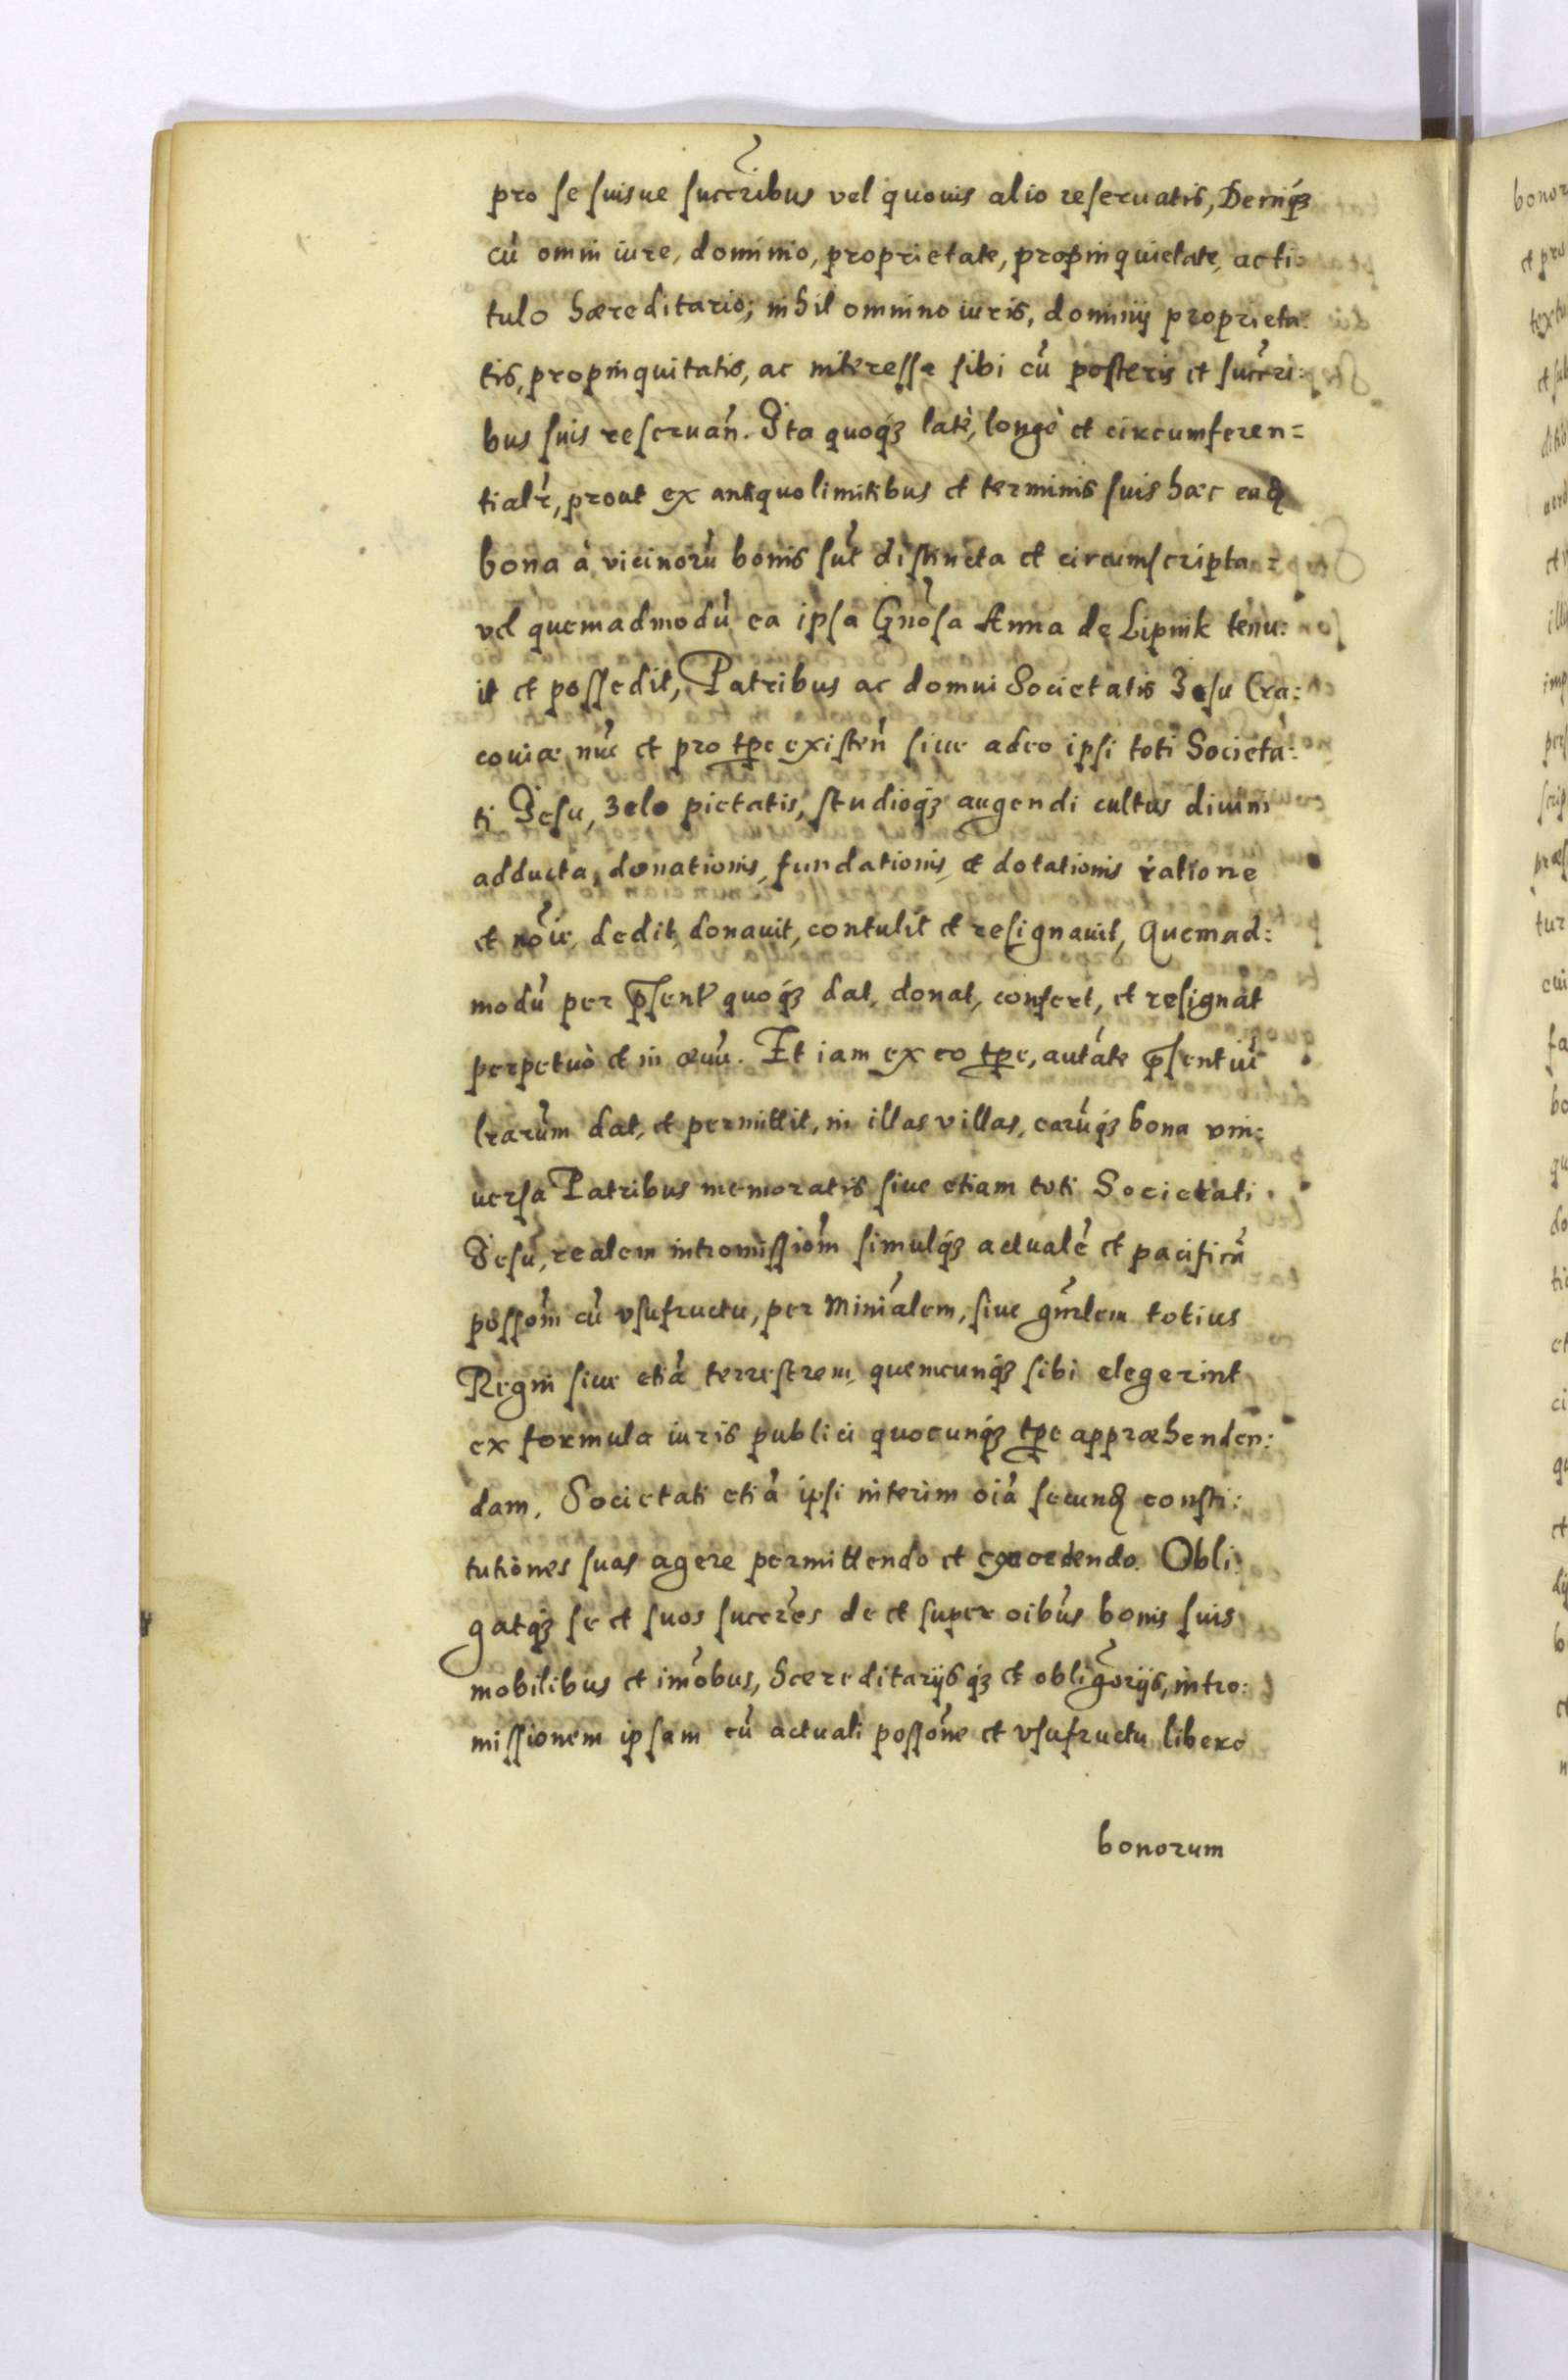 pro se suisue succribus vel quouis alio reseruatis, Deniq́ʒ
cū omni iure, dominio, proprietate, propinquietate, acti
tulo hæreditario; nihil omnino iuris, dominij proprieta:
tis, propinquitatis, ac interesse sibi cū posteris et succri:
bus suis reseruan̄. Ita quoq́ʒ latè, longè et circumferen=
tialr̄, prout ex antiquo limitibus et terminis suis hæc
bona à vicinorū bonis sūt distincta et circumscripta
vel quemadmodū ea ipsa Gnōsa Anna de Lipnik tenu:
it et possedit, Patribus ac domui Societatis Iesu Cra:
couiæ nūc et pro tp̄e existen̄ siue adeo ipsi toti Societa:
ti Iesu, zelo pietatis, studioq́ʒ augendi cultus diuini
adducta, donationis, fundationis, et dotationis ratione
et nōie, dedit, donauit, contulit et resignauit, Quemad:
modū per p̄sent̄ quoq́ʒ dat, donat, confert, et resignat
perpetuò et in æuū. Et iam ex eo tp̄e, autāte p̄sentiū
lrārum dat, et permittit, in illas villas, earūq́ʒ bona vni:
uersa Patribus memoratis siue etiam toti Societati
Iesu, realem intromissiōm simulq́ʒ actualē et pacificā
possōm cū vsufructu, per Miniālem, siue gn̄rlem totius
Regni siue etiā terrestrem, quemcunq́ʒ sibi elegerint
ex formula iuris publici quocunq́ʒ tp̄e appræhenden:
dam. Societati etiā ipsi interim oiā secund̄ consti:
tutiones suas agere permittendo et Obli:
gatq́ʒ se et suos succr̄es de et super oibūs bonis suis
mobilibus et im̄obus, hæreditarijsq́ʒ et obligōrijs, intro:
missionem ipsam cū actuali possōne et vsufructu libero
bonorum